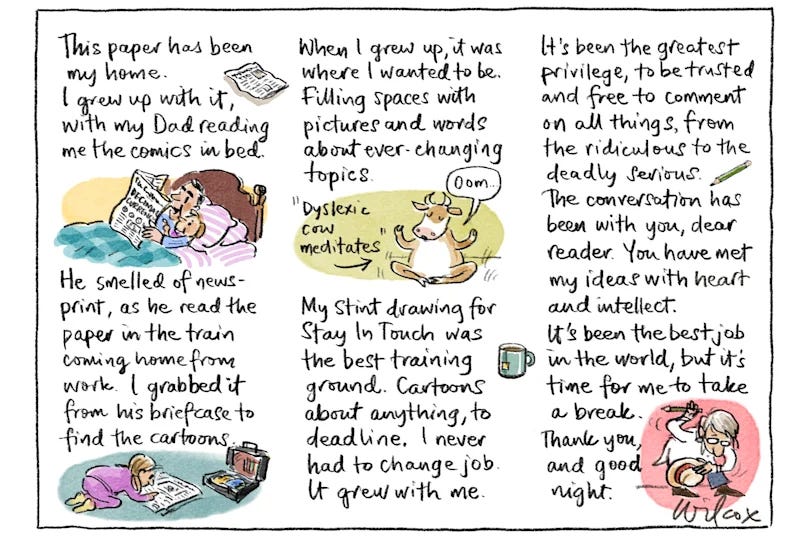 This paper has been
my home.
I grew up with it,
with my Dad reading
me the comics in bed.
He smelled of news-
print, as he read the
paper in the train
coming home from
work. I grabbed it
from his briefcase to
find the cartoons.
When I grew up, it was
where I wanted to be.
Filling spaces with
pictures and words
about ever-changing
topics.
"Dyslexic
cow
meditates"
Oom..
My stint drawing for
Stay In Touch was
the best training
ground. Cartoons
about anything, to
deadline. I never
had to change job.
It grew with me.
It's been the greatest
privilege, to be trusted
and free to comment
on all things, from
the ridiculous to the
deadly serious.
The conversation has
been with you, dear
reader. You have met
my ideas with heart
and intellect.
It's been the best job
in the world, but it's
time for me to take
a break.
Thank you,
and good
night.
Wilcox